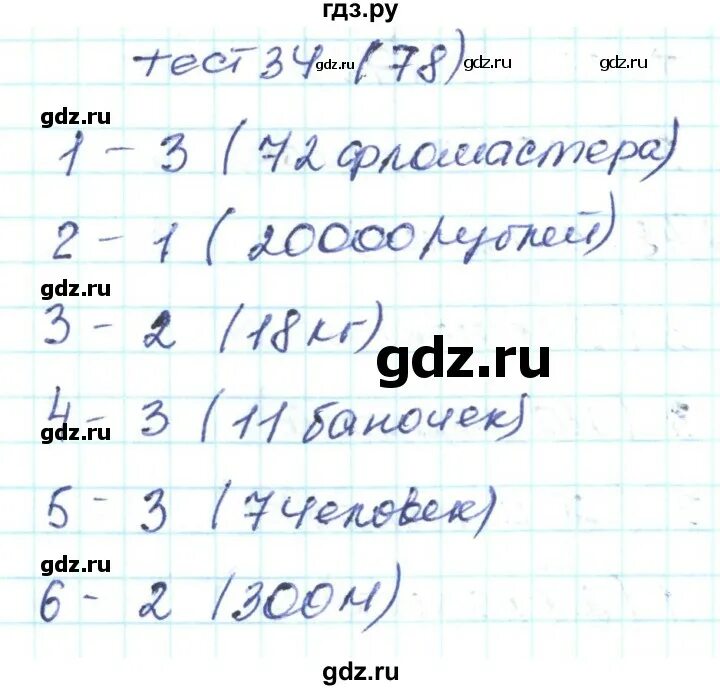 гдз.ру
тест 34 (78)
gdz.ru gdz.ru
gdz.ru
1 - 3 (72 фломастера)
2 - 1 (20000 рублей)
gdz.ru
3 - 2 (18 кг)
gdz.ru
4 - 3 (11 баночек)
gdz.ru
5 - 3 (7 человек)
gdz.ru
6 - 2 (300 м)
gdz.ru